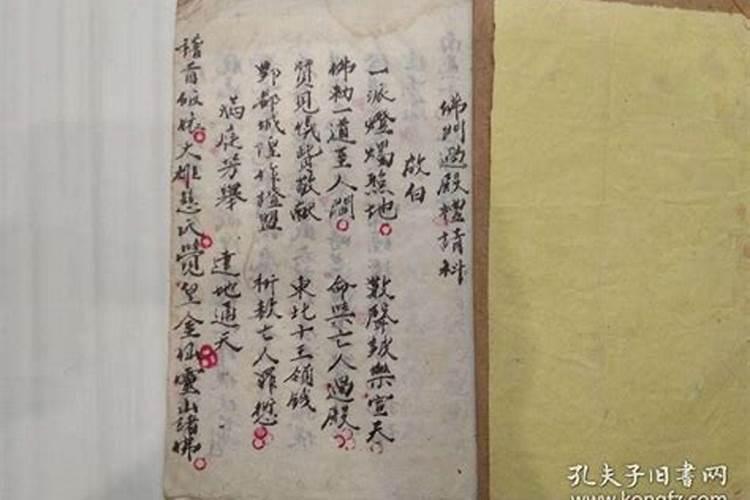 佛门過殿禮請科
啟白
一派燈燭照地 数聲鼓樂宣天
佛勅一道至人間 命與亡人過殿
賫見儀賛敬献 東北十王領钱
酆都城隍作證盟 析赦亡人罪愆
满庭芳舉 達地通天
稽首皈依大雄慈氏覺皇金仙靈山诸佛
孔夫子旧书网
www.kongfz.com